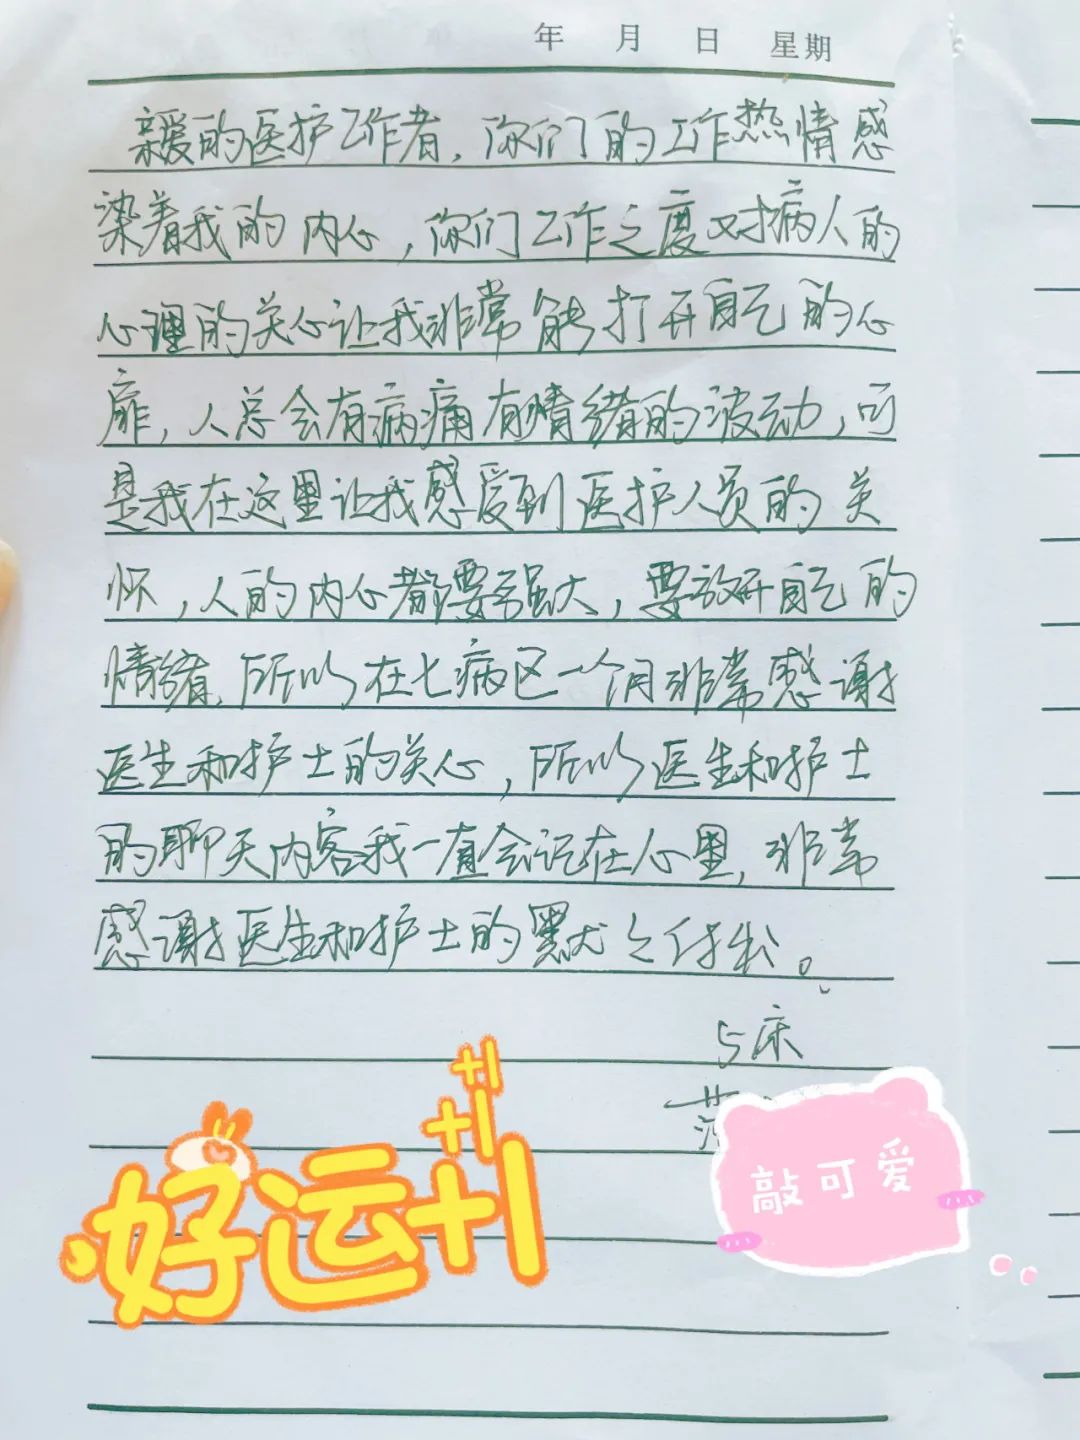 年 月 日 星期
亲爱的医护工作者，你们的工作热情感
染着我的内心，你们工作之度对病人的
心理的关心让我非常能打开自己的心
扉，人总会有病痛有情绪的波动，可
是我在这里让我感受到医护人员的关
怀，人的内心都要强大，要放开自己的
情绪，所以在七病区一个月非常感谢
医生和护士的关心，所以医生和护士
的聊天内容我一直会记在心里，非常
感谢医生和护士的默之付出。
5床
好运+1
+1
+1
敲可爱